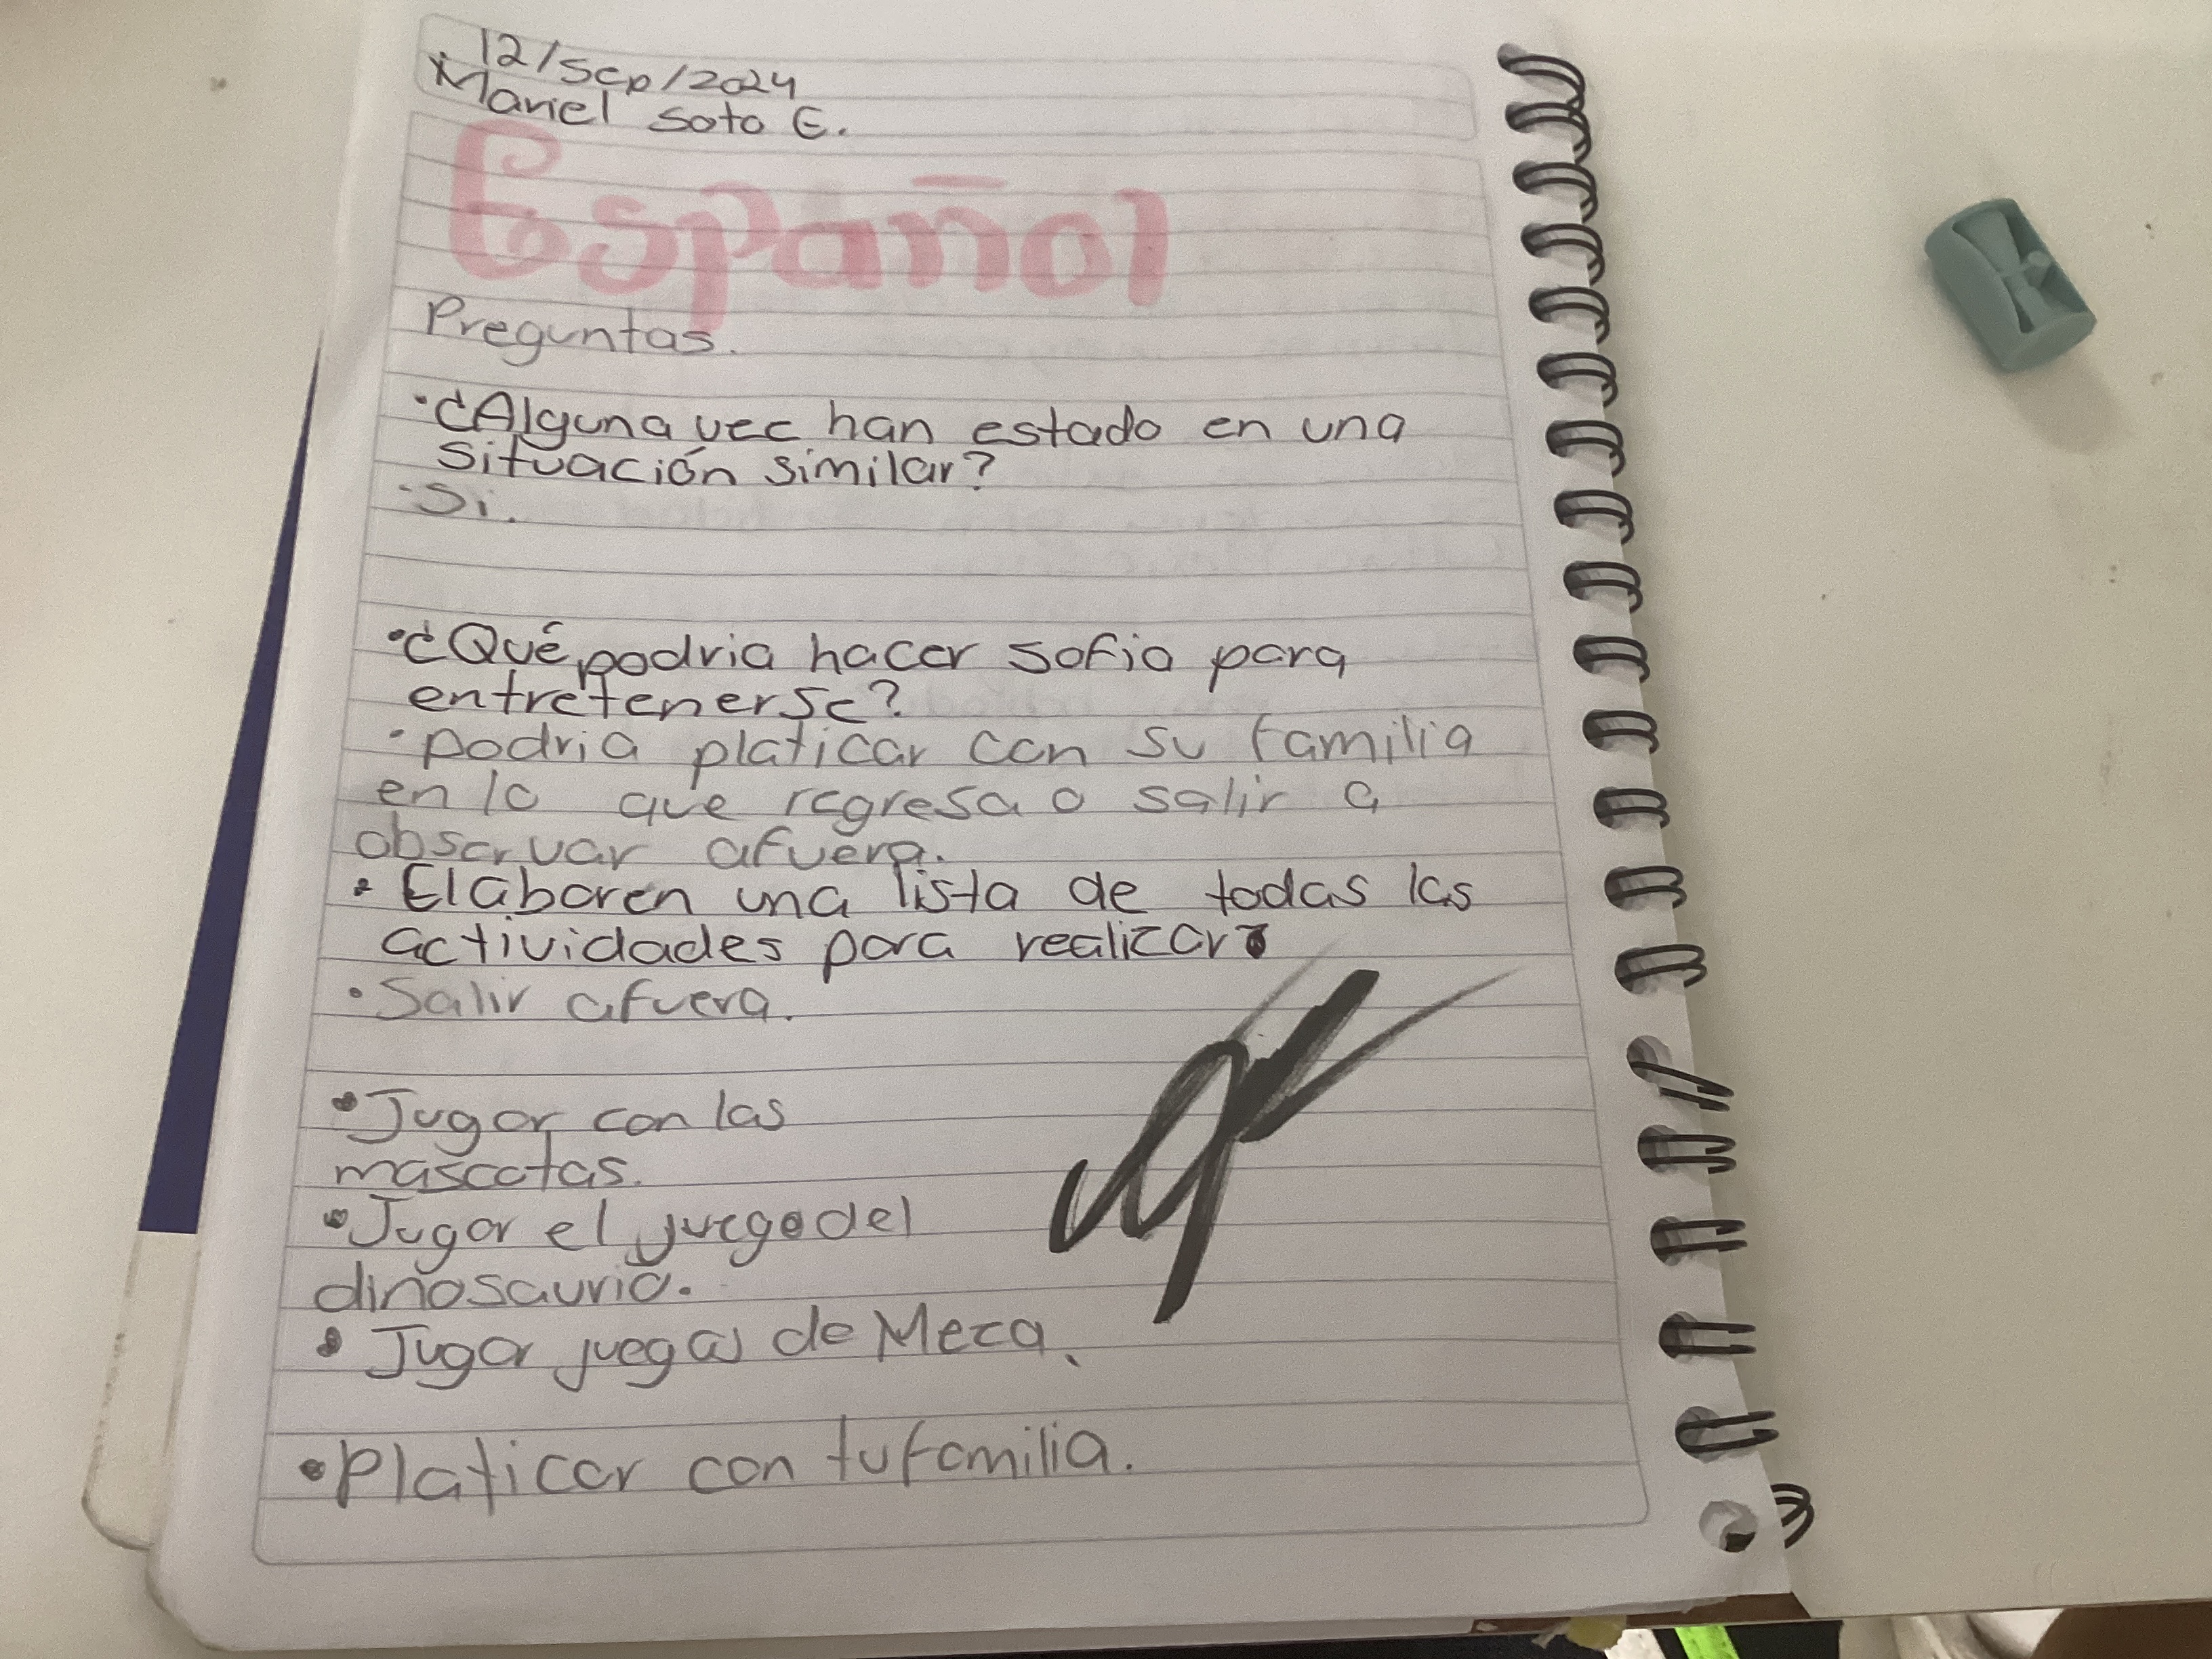 12/sep/2024
Mariel Soto E.
Español
Preguntas.
• ¿Alguna vec han estado en una
situación similar?
• Si.
• ¿Qué podria hacer sofia para
entretenerse?
• podria platicar con su familia
en lo que regresa o salir a
observar afuera.
• Elaboren una lista de todas las
actividades para realizar
• Salir afuera.
• Jugar con las
mascotas.
• Jugar el juego del
dinosaurio.
• Jugar juegos de Meza.
• Platicar con tu familia.